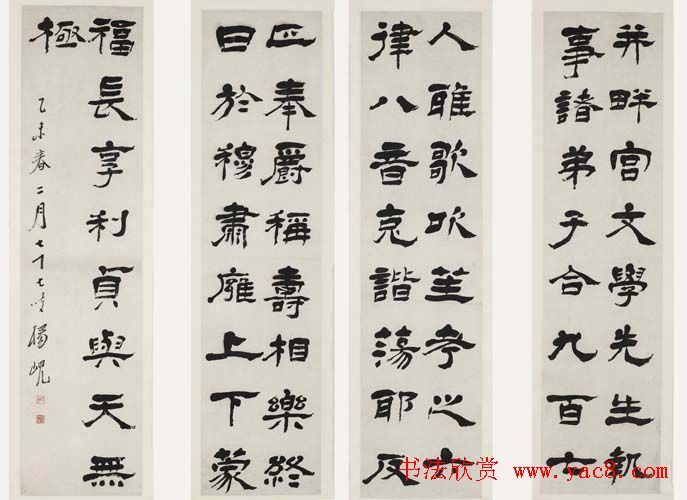 并畔宮文學先生執
事諸弟子合九百七
人雅歌吹笙考之六
律八音克諧蕩耶反
正奉爵稱壽相樂終
日於穆肅廱上下蒙
福長享利貞與天無
極
乙未春二月七十七叟楊峴
书法欣赏 www.yac8.com